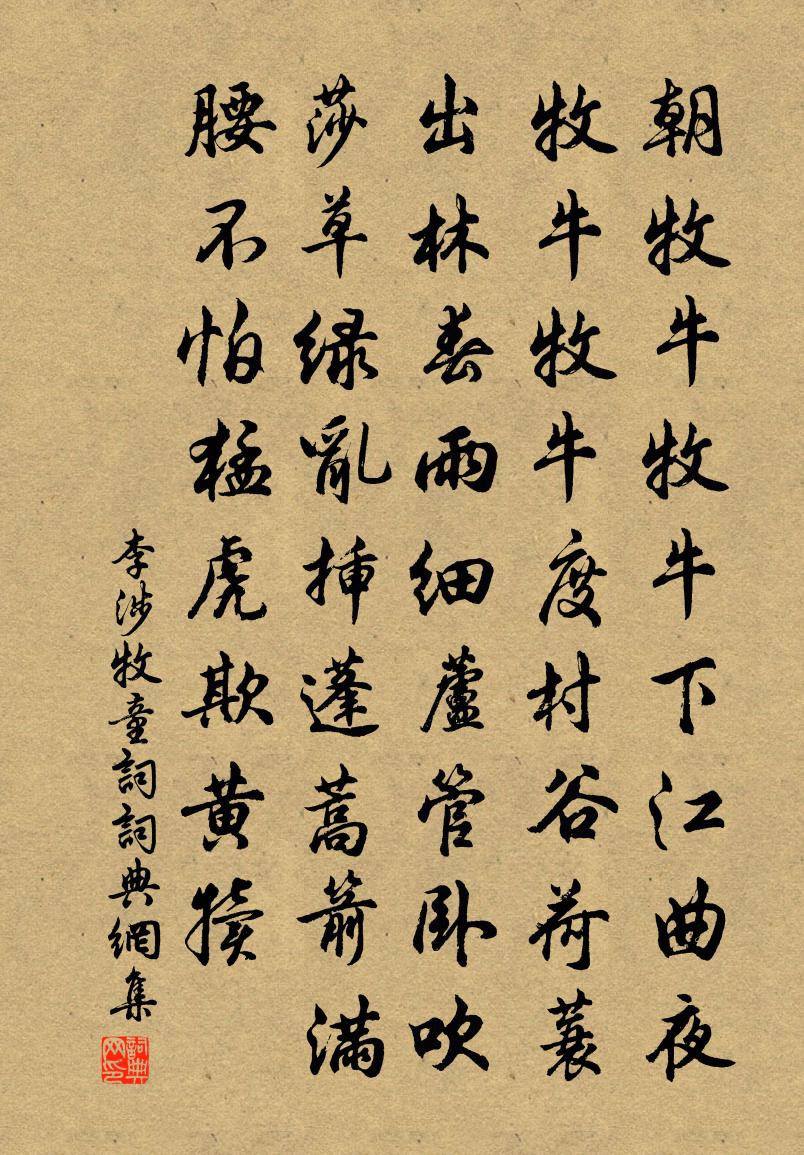 朝牧牛牧牛下江曲夜
牧牛牧牛度村谷荷蓑
出林春雨細蘆管臥吹
莎草綠亂插蓬蒿箭滿
腰不怕猛虎欺黃犢
李涉牧童詞詞典網集
詞典网印